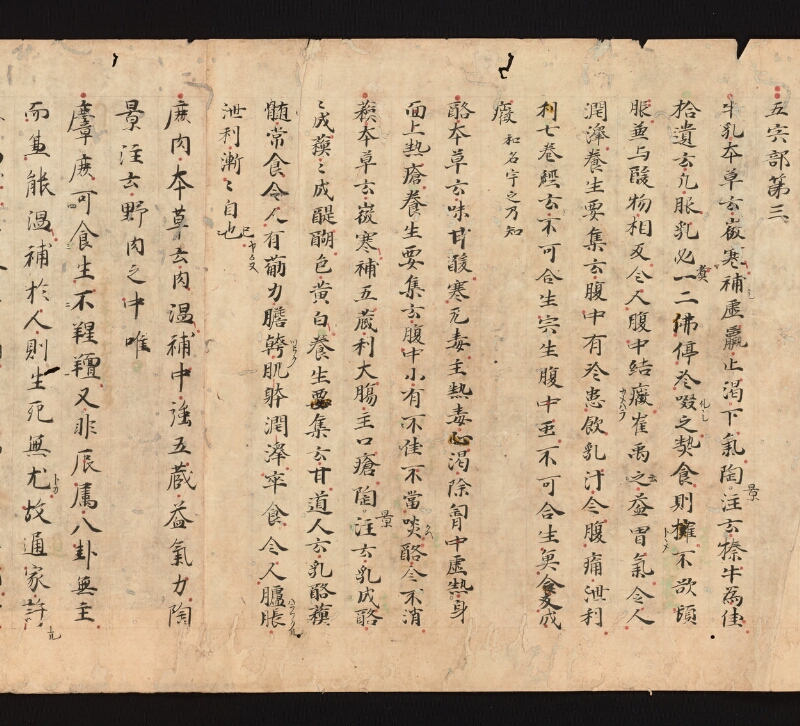 五宍部第三
牛乳本草云微寒補虚羸止渇下氣陶景注云榛牛為佳
拾遺云凡服乳必煑一二沸停冷啜之熱食則擁不欲頓
服並与酸物相反令人腹中結癥崔禹云之益胃氣令人
潤澤養生要集云腹中有冷患飲乳汁令腹痛泄利
利七巻經云不可合生宍生腹中虫不可合生魚食又成
癥 和名宇之乃知
酪本草云味甘酸寒无毒主熱毒心渇除胸中虚熱身
面上熱瘡養生要集云腹中小有不佳不當啖酪令不消
蘓本草云微寒補五蔵利大腸主口瘡陶景注云乳成酪
〻成蘓〻成醍醐色黄白養生要集云甘道人云乳酪蘓
髄常食令人有筋力膽幹肌躰潤澤卒食令人臚脹
泄利漸〻自已也
庶肉本草云肉温補中強五蔵益氣力陶
景注云野肉之中唯
麞庶可食生不羶又非辰属八卦無主
而兼能温補於人則生死無尤故通家許